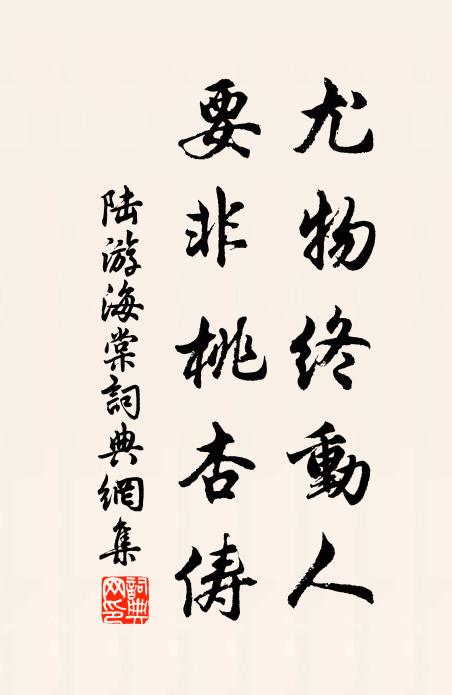 尤物終動人
要非桃杏儔
陸游海棠詞典網集
詞典網印